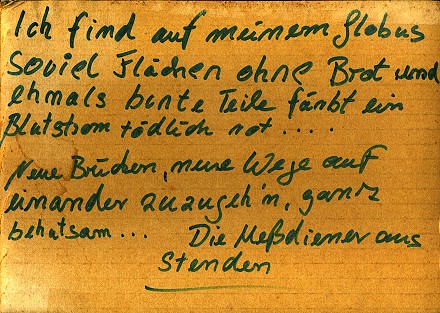 Ich find auf meinem Globus
soviel Flächen ohne Brot und
ehmals bunte Teile färbt ein
Blutstrom tödlich rot ....
Neue Brücken, neue Wege auf
einander zuzugeh'n, ganz
behutsam... Die Meßdiener aus
Stenden